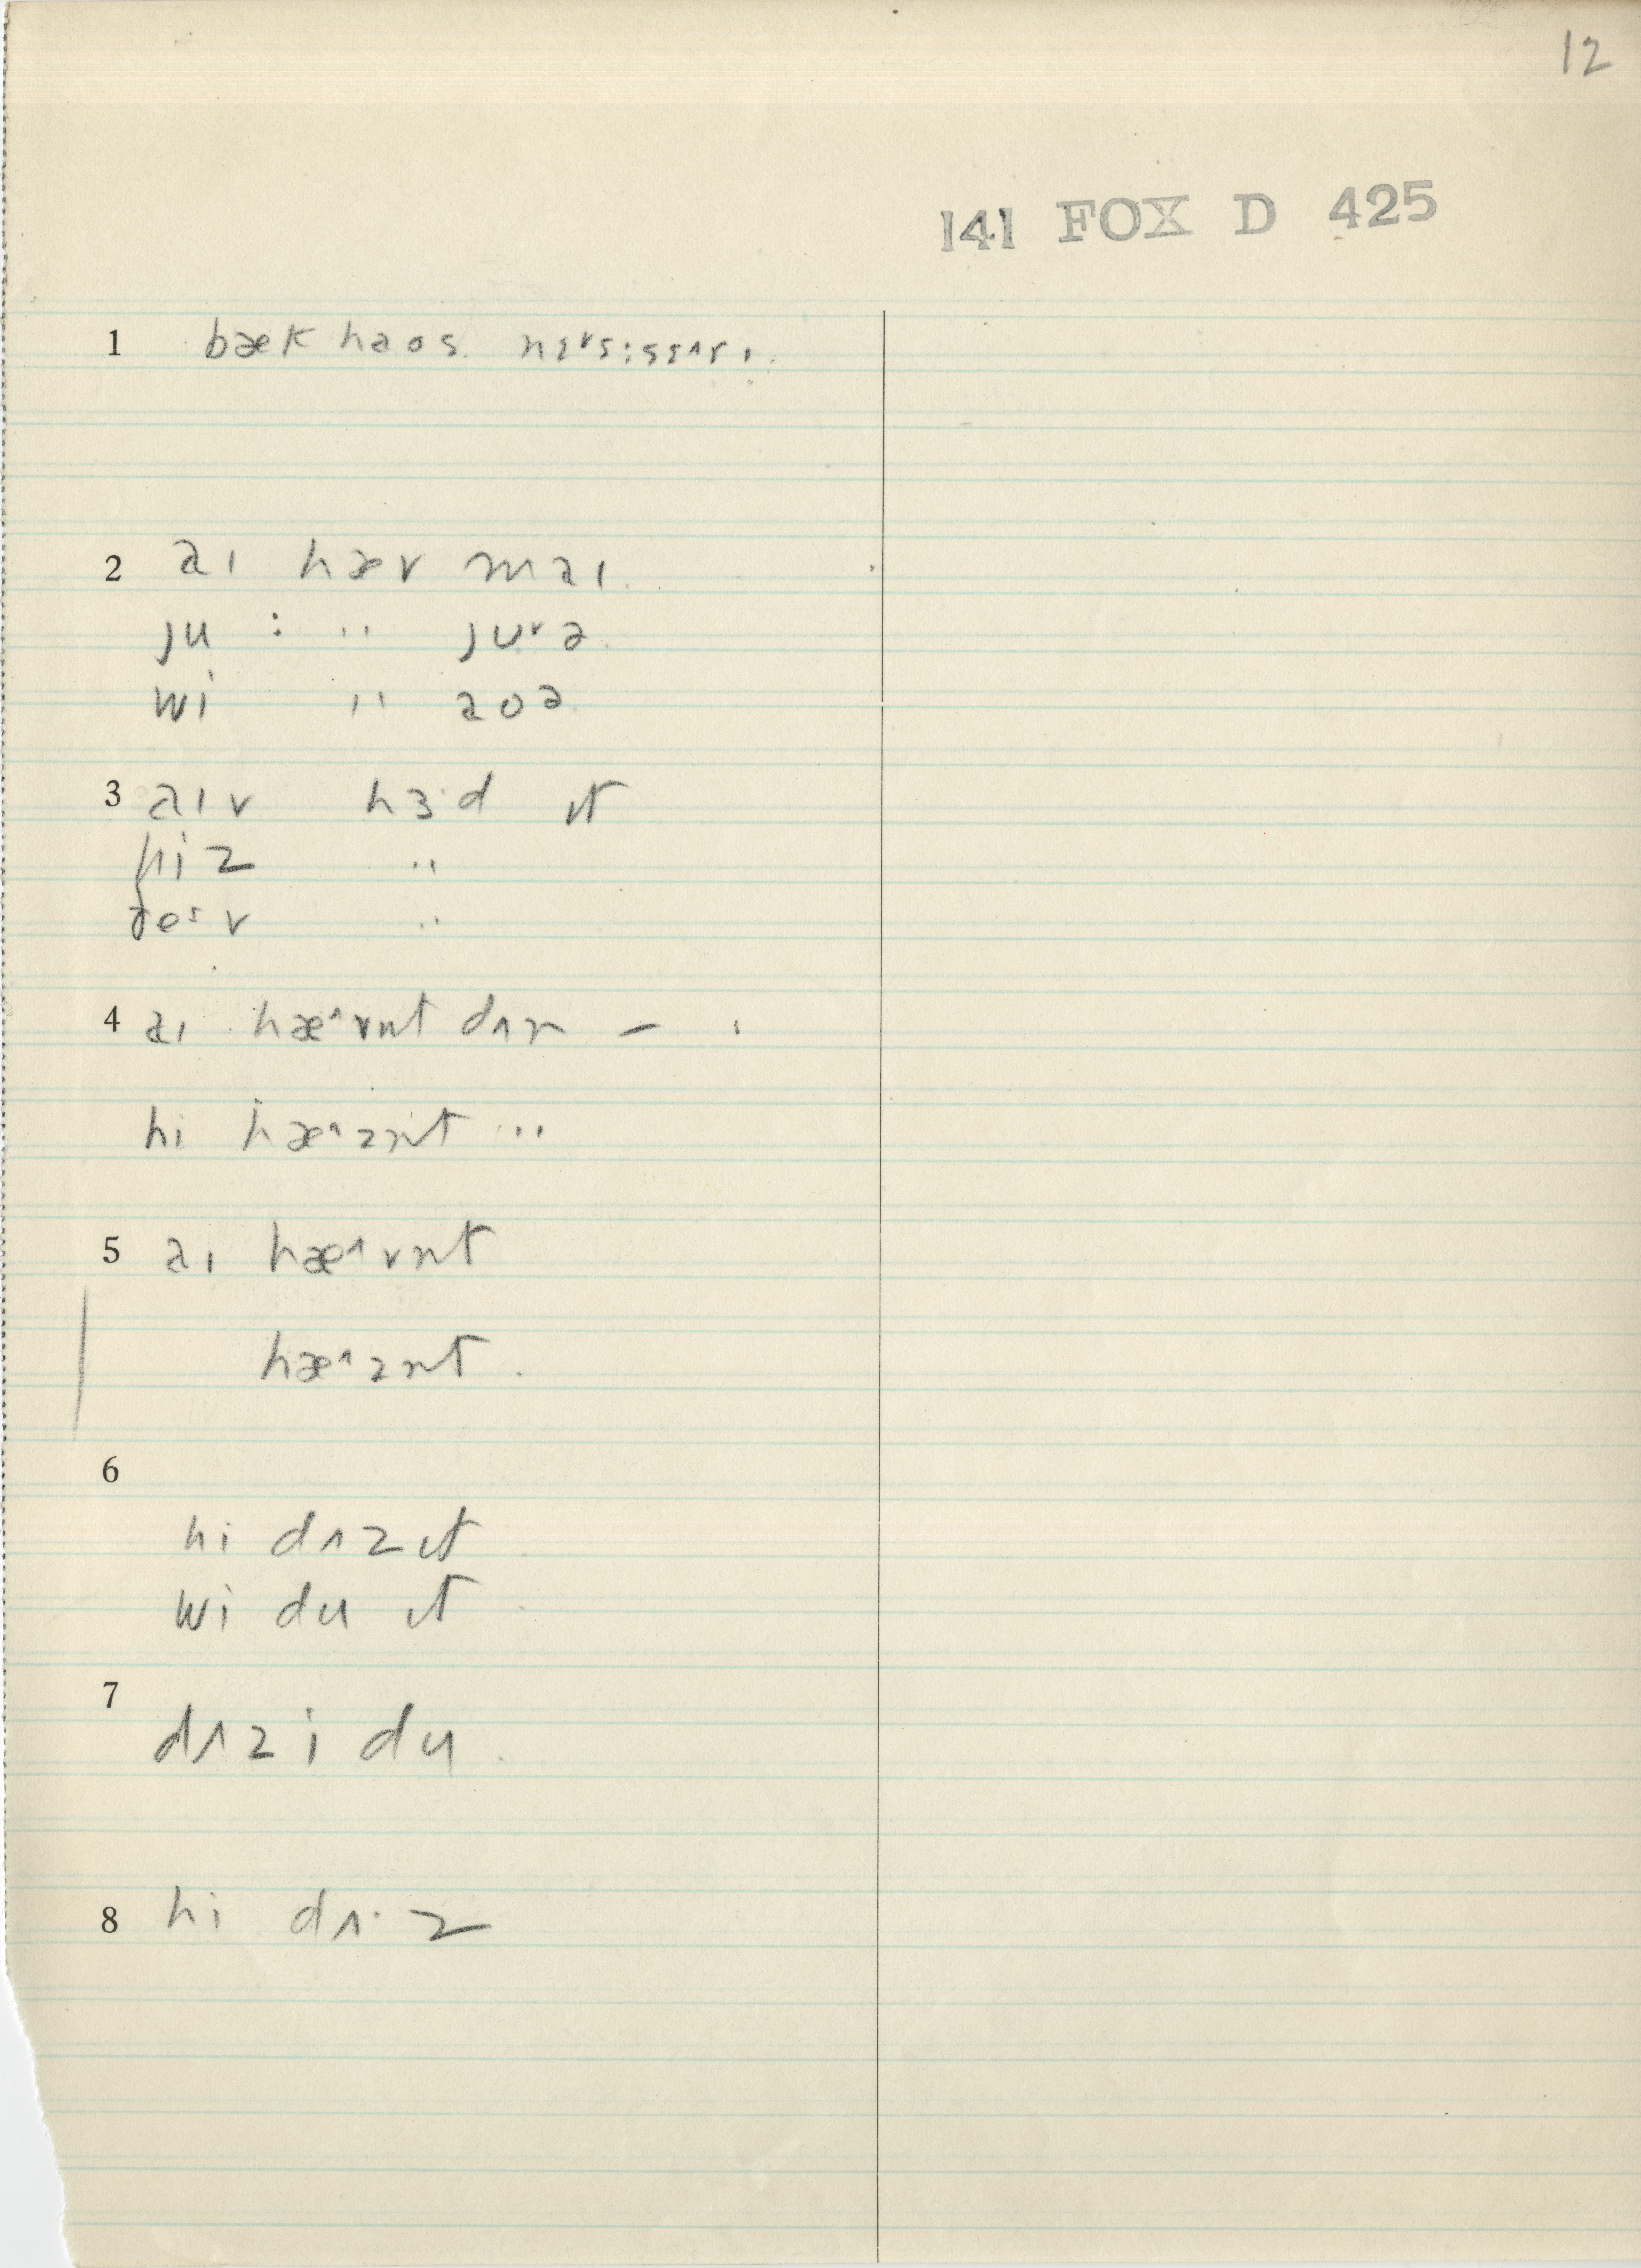 12
141 FOX D 425
1 bæk haos
2 aɪ hæv maɪ
ju : '' juᵛə
wi '' aoə
3 aɪv hɜ·d ɪt
hiz ''
''
4 aɪ hæ^vnt dʌn – '
hi hæ^znt ...
5 aɪ hæ^vnt
hæ^znt .
6
hi dʌz ɪt
wi du ɪt
7
dʌz i du
8 hi dʌ·z